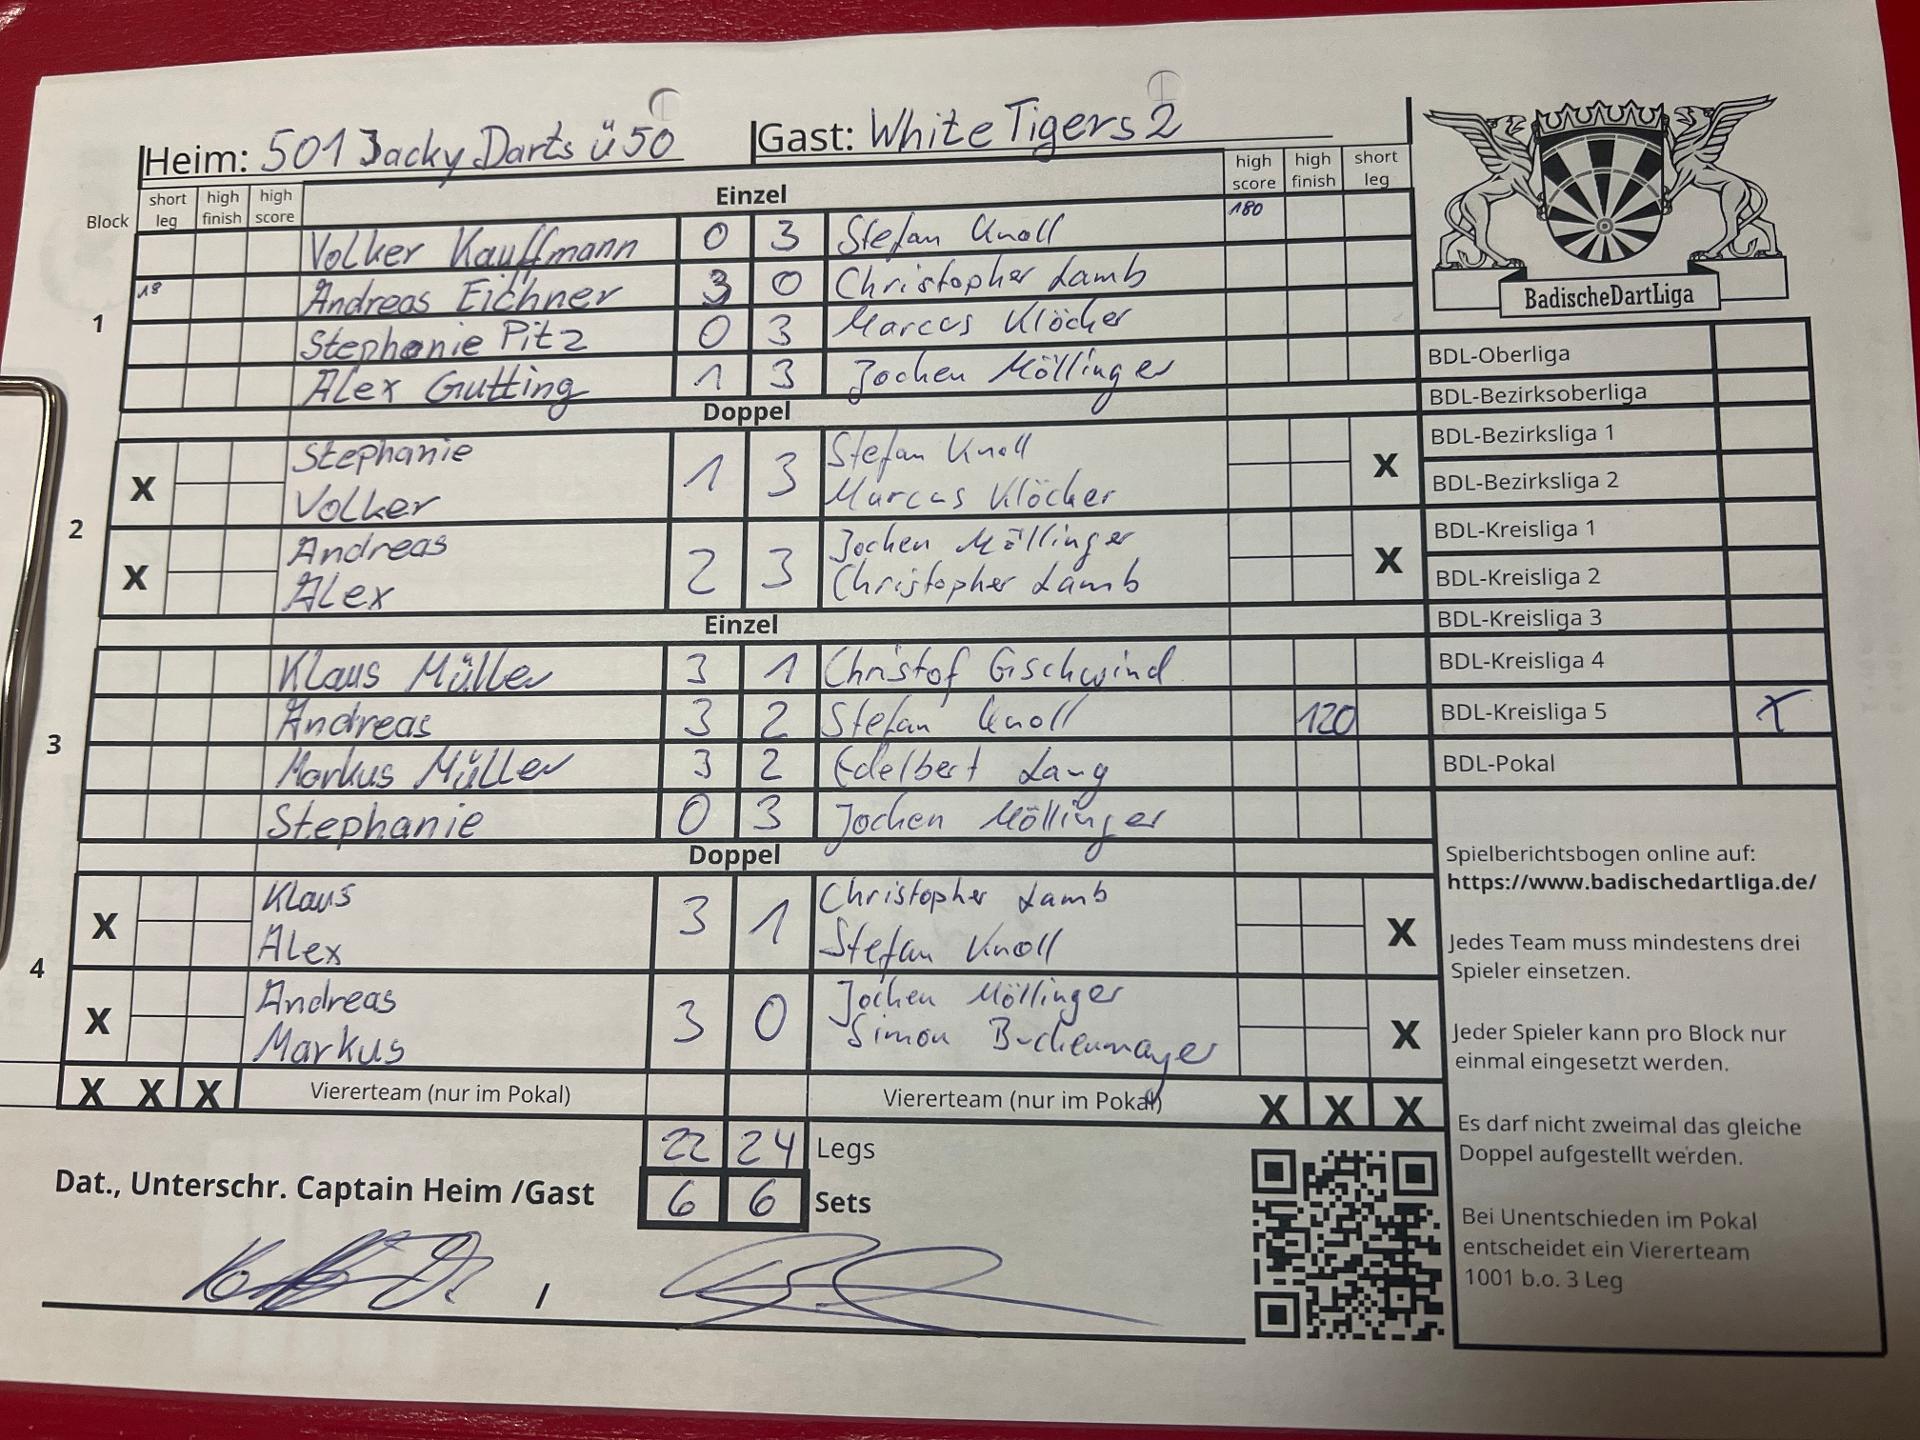 Heim: 501 Jacky Darts ü50 Gast: White Tigers 2
Block short leg high finish high score Einzel high score high finish short leg
Volker Kauffmann 0 3 Stefan Knoll 180
18 Andreas Eichner 3 0 Christopher Lamb
1
Stephanie Pitz 0 3 Marcus Klöcher
Alex Gutting 1 3 Jochen Möllinger
Doppel
X Stephanie 1 3 Stefan Knoll X
Volker Marcus Klöcher
2
X Andreas 2 3 Jochen Möllinger X
Alex Christopher Lamb
Einzel
Klaus Müller 3 1 Christof Gschwind
Andreas 3 2 Stefan Knoll 120
3
Markus Müller 3 2 Edelbert Lang
Stephanie 0 3 Jochen Möllinger
Doppel
X Klaus 3 1 Christopher Lamb X
Alex Stefan Knoll
4
X Andreas 3 0 Jochen Möllinger X
Markus Simon Buchenmayer
X X X Viererteam (nur im Pokal) Viererteam (nur im Pokal) X X X
22 24 Legs
Dat., Unterschr. Captain Heim /Gast 6 6 Sets
/
BadischeDartLiga
BDL-Oberliga
BDL-Bezirksoberliga
BDL-Bezirksliga 1
BDL-Bezirksliga 2
BDL-Kreisliga 1
BDL-Kreisliga 2
BDL-Kreisliga 3
BDL-Kreisliga 4
BDL-Kreisliga 5 X
BDL-Pokal
Spielberichtsbogen online auf:
https://www.badischedartliga.de/
Jedes Team muss mindestens drei
Spieler einsetzen.
Jeder Spieler kann pro Block nur
einmal eingesetzt werden.
Es darf nicht zweimal das gleiche
Doppel aufgestellt werden.
Bei Unentschieden im Pokal
entscheidet ein Viererteam
1001 b.o. 3 Leg